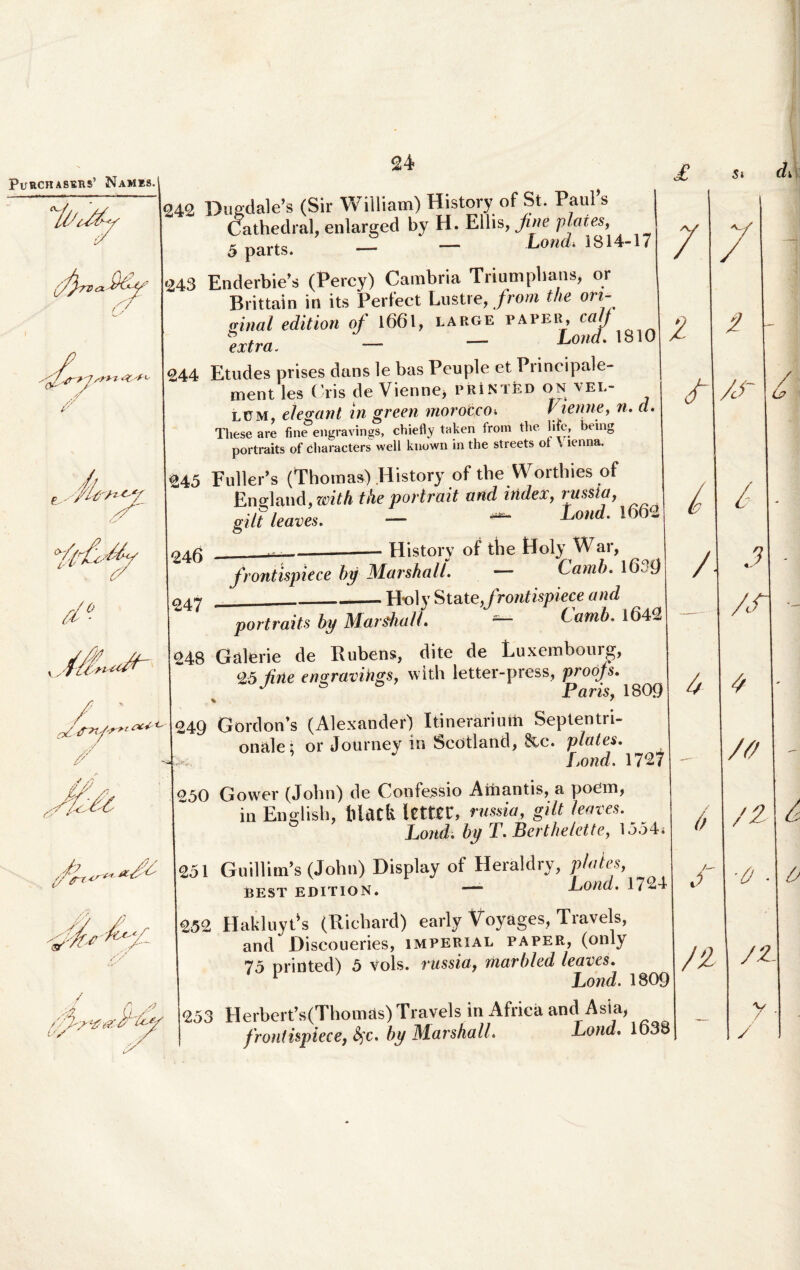 24
PURCHASERS' NAMES.
£ s. d.
242 Dugdale's (Sir William) History of St. Paul's
Cathedral, enlarged by H. Ellis, fine plates,
5 parts. — — Lond. 1814-17
7 7
243 Enderbie's (Percy) Cambria Triumphans, or
Brittain in its Perfect Lustre, from the ori-
ginal edition of 1661, LARGE PAPER, calf
extra. — — Lond. 1810
2 2
244 Etudes prises dans le bas Peuple et Principale-
ment les Cris de Vienne, PRINTED ON VEL-
LUM, elegant in green morocco. Vienne, n. d.
These are fine engravings, chiefly taken from the life, being
portraits of characters well known in the streets of Vienna.
5 15 6
245 Fuller's (Thomas) History of the Worthies of
England, with the portrait and index, russia,
gilt leaves. — — Lond. 1662
6 6
246 ———— History of the Holy War,
frontispiece by Marshall. — Camb. 1639
1 3
do
247 ———— Holy State, frontispiece and
portraits by Marshall. — Camb. 1642
15
248 Galerie de Rubens, dite de Luxembourg,
25 fine engravings, with letter-press, proofs.
Paris, 1809
4 4
249 Gordon's (Alexander) Itinerarium Septentri-
onale; or Journey in Scotland, &c. plates.
Lond. 1727
— 10
250 Gower (John) de Confessio Amantis, a poem,
in English, black letter, russia, gilt leaves.
Lond. by T. Berthelette, 1554.
6 12 6
251 Guillim's (John) Display of Heraldry, plates,
BEST EDITION. — Lond. 1724
5 0 0
252 Hakluyt's (Richard) early Voyages, Travels,
and Discoueries, IMPERIAL PAPER, (only
75 printed) 5 vols. russia, marbled leaves.
Lond. 1809
12 12
253 Herbert's (Thomas) Travels in Africa and Asia,
frontispiece, &c. by Marshall. Lond. 1638
— 7